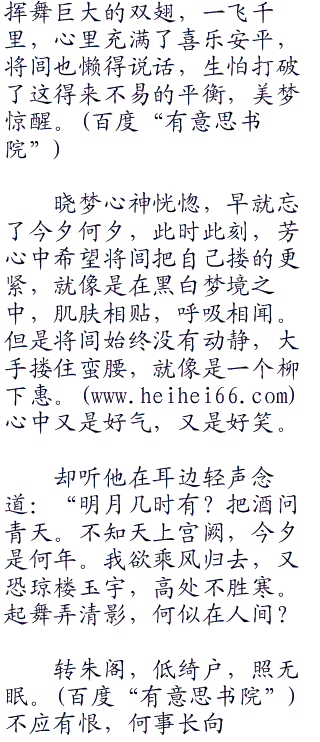 挥舞巨大的双翅，一飞千
里，心里充满了喜乐安平，
将闾也懒得说话，生怕打破
了这得来不易的平衡，美梦
惊醒。(百度“有意思书
院”)
晓梦心神恍惚，早就忘
了今夕何夕，此时此刻，芳
心中希望将闾把自己搂的更
紧，就像是在黑白梦境之
中，肌肤相贴，呼吸相闻。
但是将闾始终没有动静，大
手搂住蛮腰，就像是一个柳
下惠。(www.heihei66.com)
心中又是好气，又是好笑。
却听他在耳边轻声念
道：“明月几时有？把酒问
青天。不知天上宫阙，今夕
是何年。我欲乘风归去，又
恐琼楼玉宇，高处不胜寒。
起舞弄清影，何似在人间？
转朱阁，低绮户，照无
眠。(百度“有意思书院”)
不应有恨，何事长向